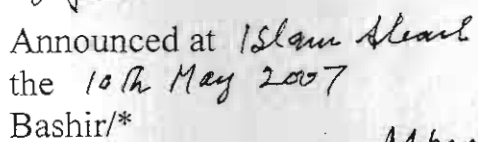 Announced at Islam Abad
the 10th May 2007
Bashir/*